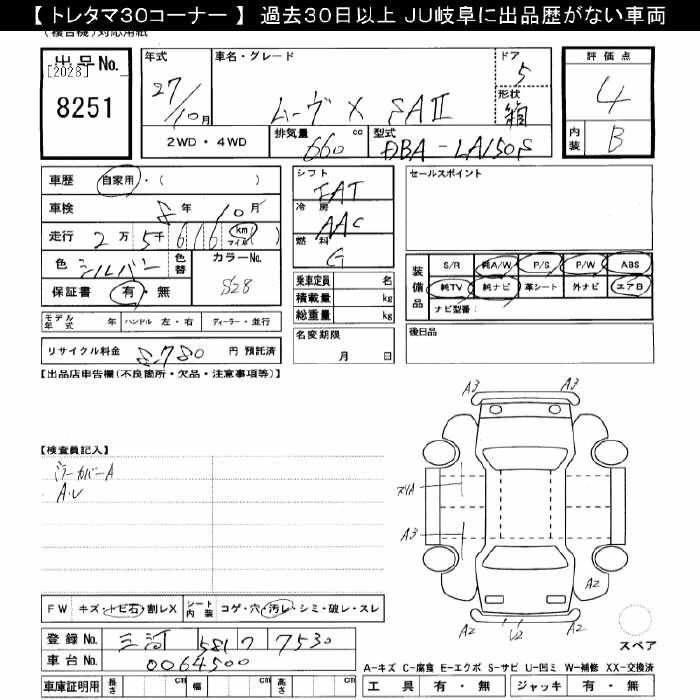 【 トレタマ30コーナー 】 過去30日以上 JU岐阜に出品歴がない車両
(複合機)対応用紙
出品No.
[2028]
8251
年式
27/10月
車名・グレード
ムーヴ X SAⅡ
ドア
5
形状
箱
評価点
4
内装
B
2WD・4WD
排気量
660 cc
型式
DBA-LA150S
車歴
自家用・( )
車検
8年 10月
走行
2万 5千 6 1 6 (km マイル)
色
シルバー
色替
カラーNo.
S28
保証書
有・無
シフト
FAT
冷房
AAC
燃料
G
乗車定員 名
積載量 kg
総重量 kg
名変期限
月 日
セールスポイント
装備品
S/R 純A/W P/S P/W ABS
純TV 純ナビ 革シート 外ナビ エアB
ナビ型番:
モデル年式 年
ハンドル 左・右
ディーラー・並行
リサイクル料金 8,780 円 預託済
後日品
【出品店申告欄(不良箇所・欠品・注意事項等)】
【検査員記入】
ミラーカバーA
A・U
A3
A3
スリA
A3
A2
A2
A2
U2
FW キズ・トビ石・割レX
シート内装 コゲ・穴・汚レ・シミ・破レ・スレ
登録No. 三河 581 ワ 7530
車台No. 0064500
車庫証明用 長さ cm 幅 cm 高さ cm
スペア
A-キズ C-腐食 E-エクボ S-サビ U-凹ミ W-補修 XX-交換済
工具 有・無 ジャッキ 有・無